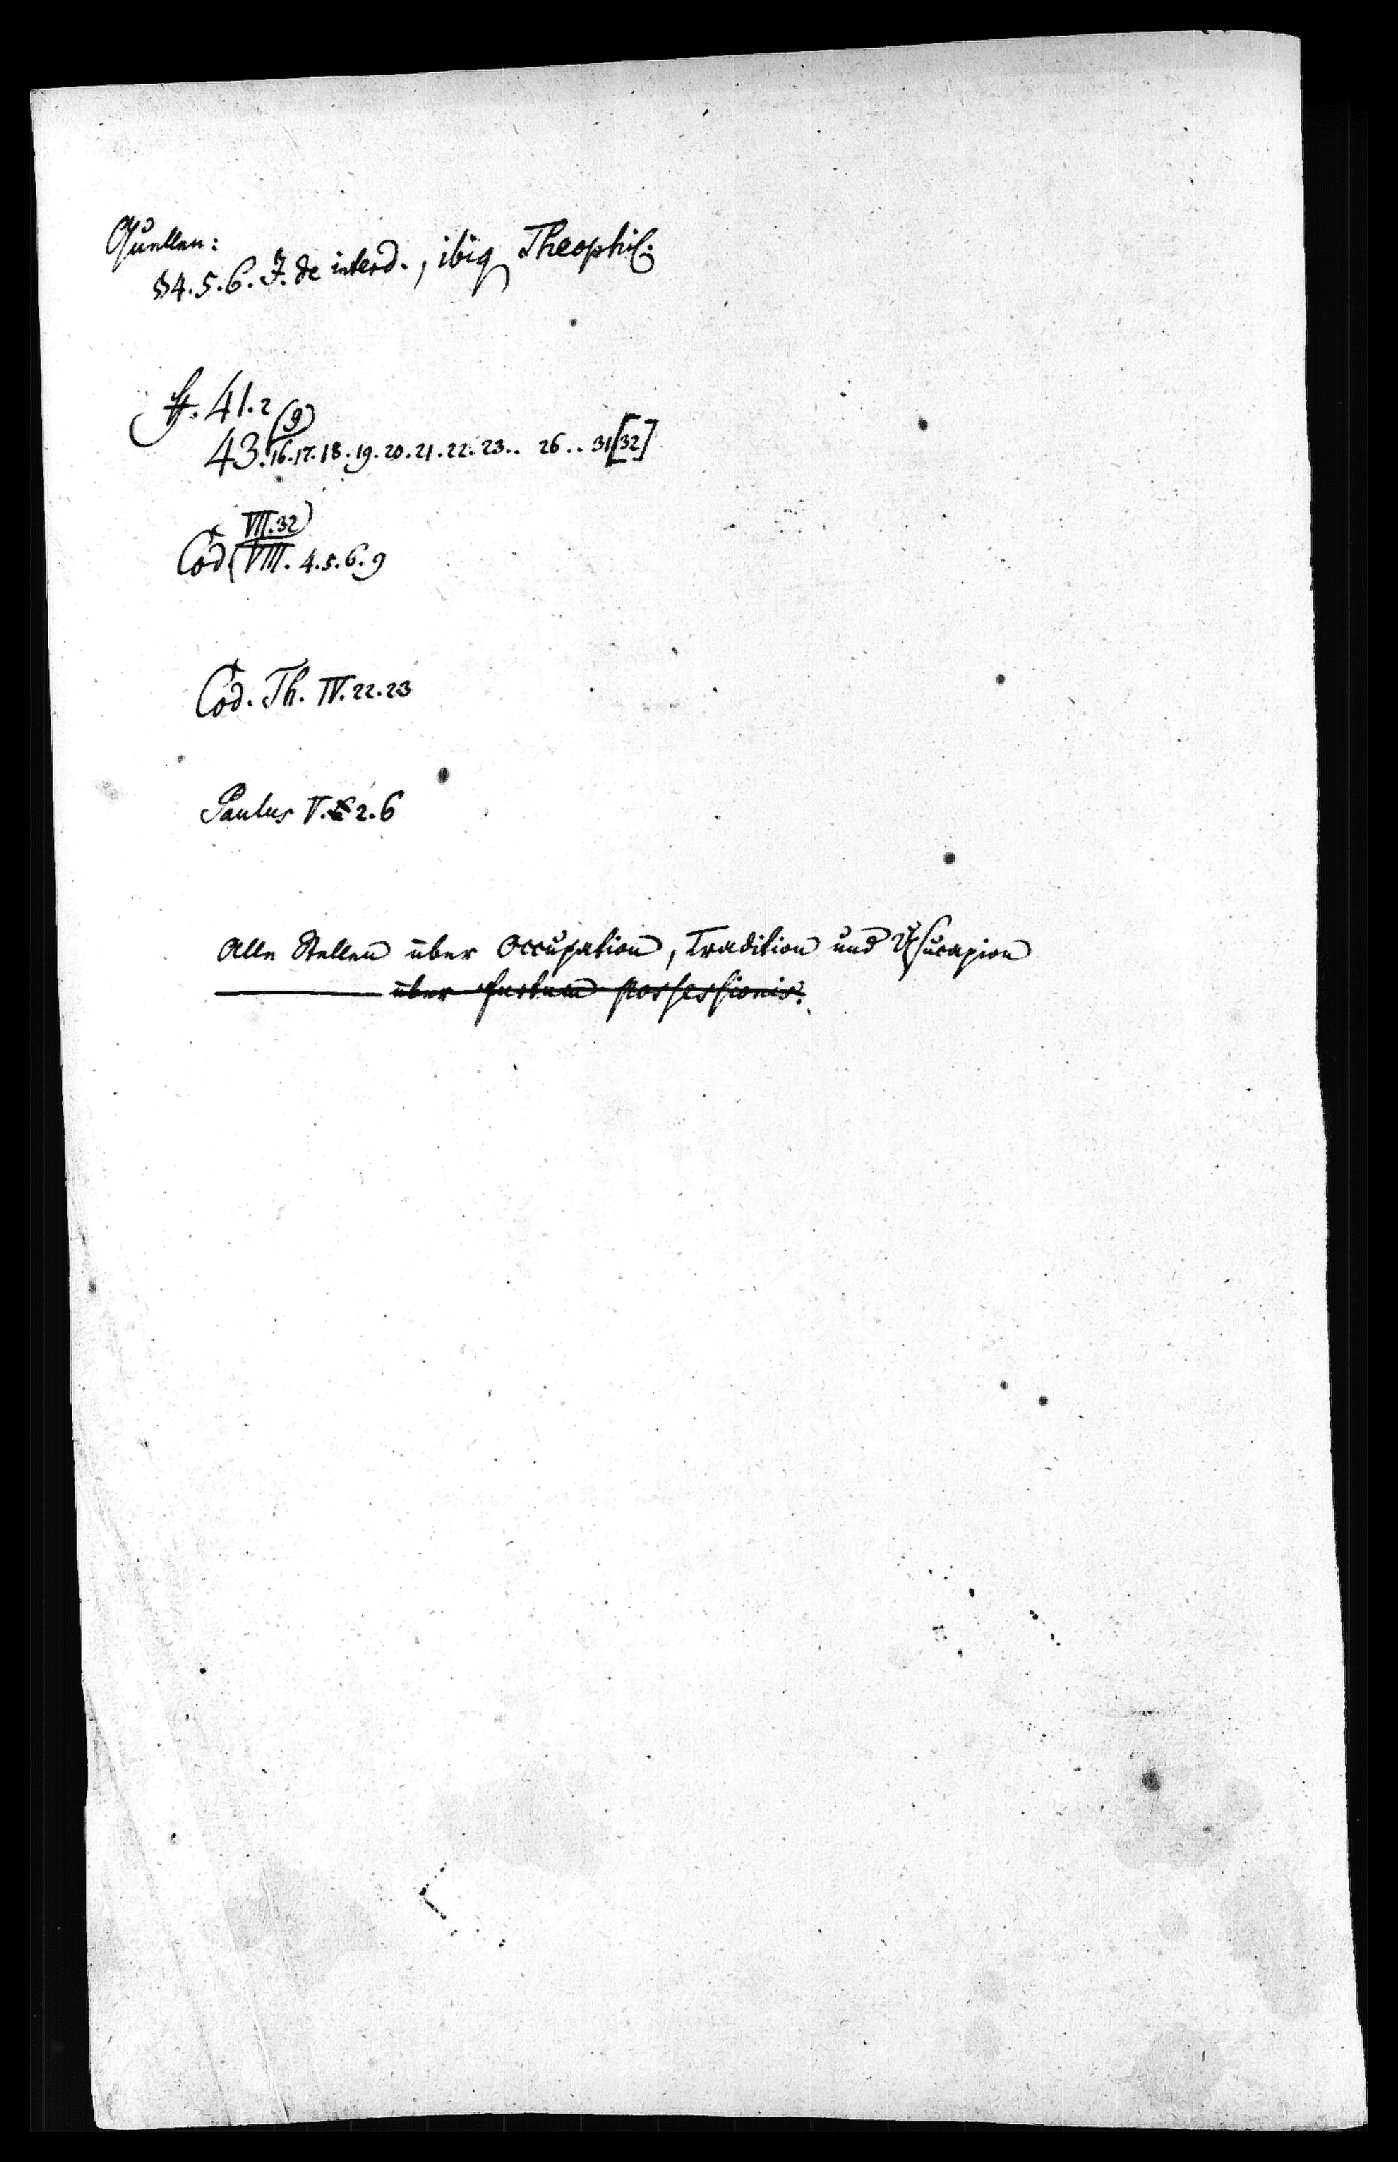 Quellen:
§ 4. 5. 6. J. de interd., ibiq Theophil.
ff. 41. 2
(9)
43. 16. 17. 18. 19. 20. 21. 22. 23.. 26.. 31 [32]
VII. 32)
Cod. (VIII. 4. 5. 6. 9
Cod. Th. IV. 22. 23
Paulus V. 2. 6
Alle Stellen über Occupation, Tradition und Usucapion
——— über furtum possessionis.